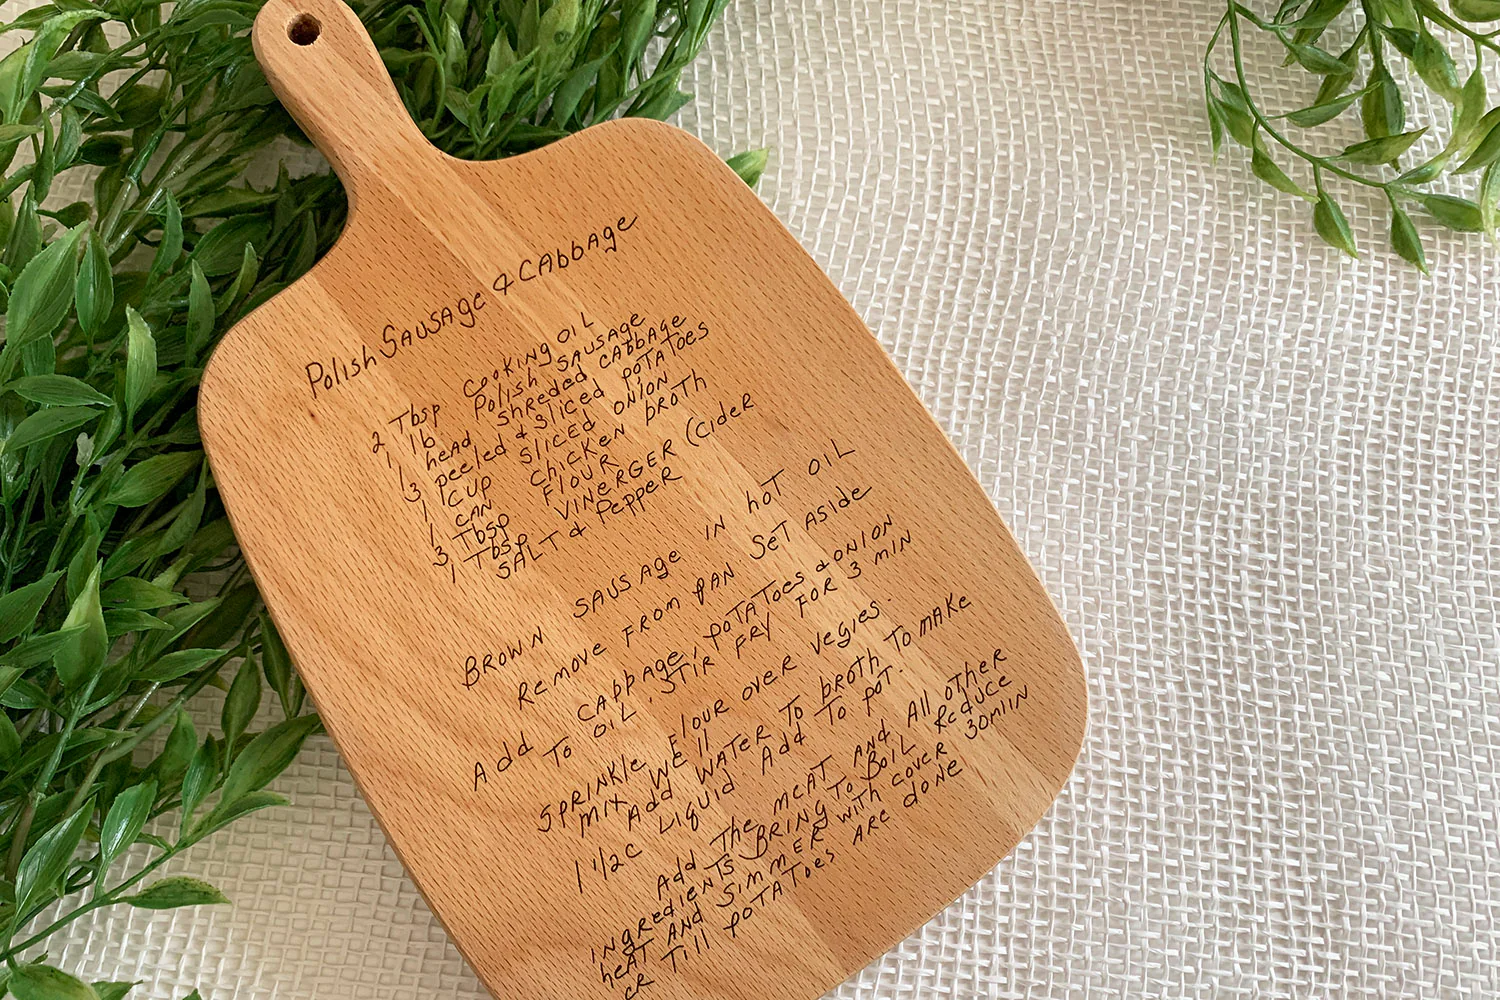 Polish SAUSAge & CAbbage
2 Tbsp Cooking OIL
1 lb Polish SAUSAge
1 heAd Shredded CAbbage
3 peeled & Sliced POTATOes
1 CUP Sliced ONION
1 CAN Chicken bROTh
3 Tbsp FLOUR
1 Tbsp VINeRGER (CideR
SALT & PePPeR
BROWN SAUSAge IN hOT OIL
Remove FROM pAN SeT ASide
Add CAbbage, poTATOes & ONION
TO OIL. STIR FRY FOR 3 MIN
SPRINKle Flour over vegies.
MIX Well
Add WATeR To bROTh To MAKe
1 1/2 C LIQUid. Add To PoT.
Add The MeAT ANd All oTheR
INgRedieNTS BRING To BOIL Reduce
heAT ANd SIMMER WITh coveR 30miIN
oR Till poTATOes ARe doNe